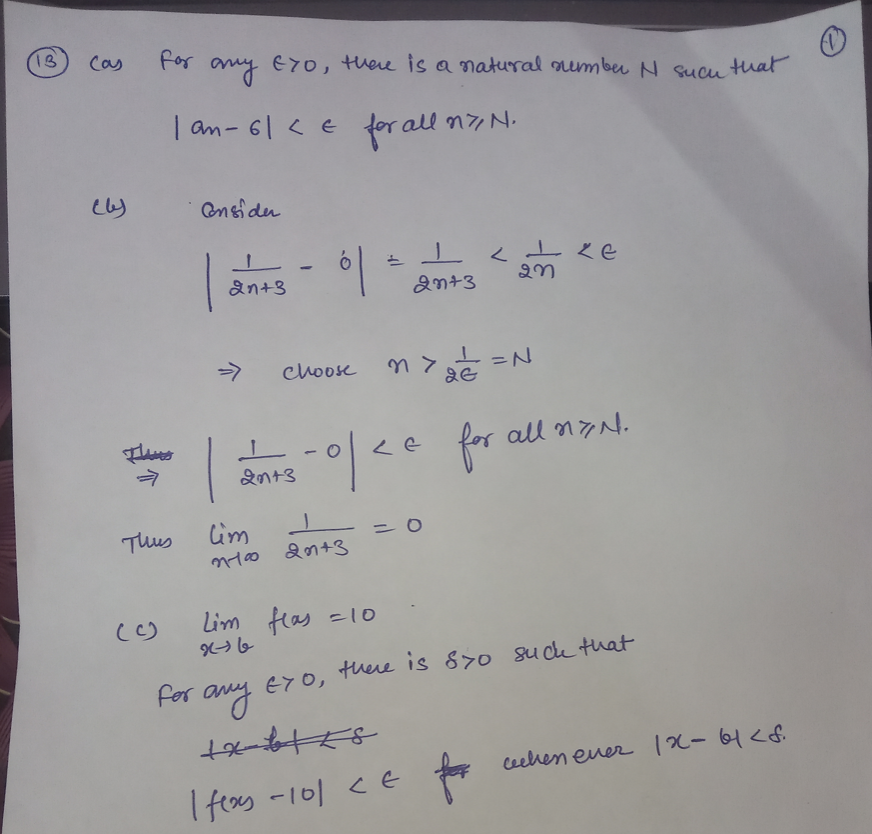 (13) (a) For any ε>0, there is a natural number N such that
①
|an - 6| < ε for all n ≥ N.
(b) Consider
| 1/(2n+3) - 0 | = 1/(2n+3) < 1/2n < ε
⇒ choose n > 1/2ε = N
~~Thus~~
⇒ | 1/(2n+3) - 0 | < ε for all n ≥ N.
Thus lim n→∞ 1/(2n+3) = 0
(c) lim x→6 f(x) = 10
For any ε>0, there is δ>0 such that
~~|x-6| < δ~~
|f(x) - 10| < ε ~~for~~ whenever |x - 6| < δ.